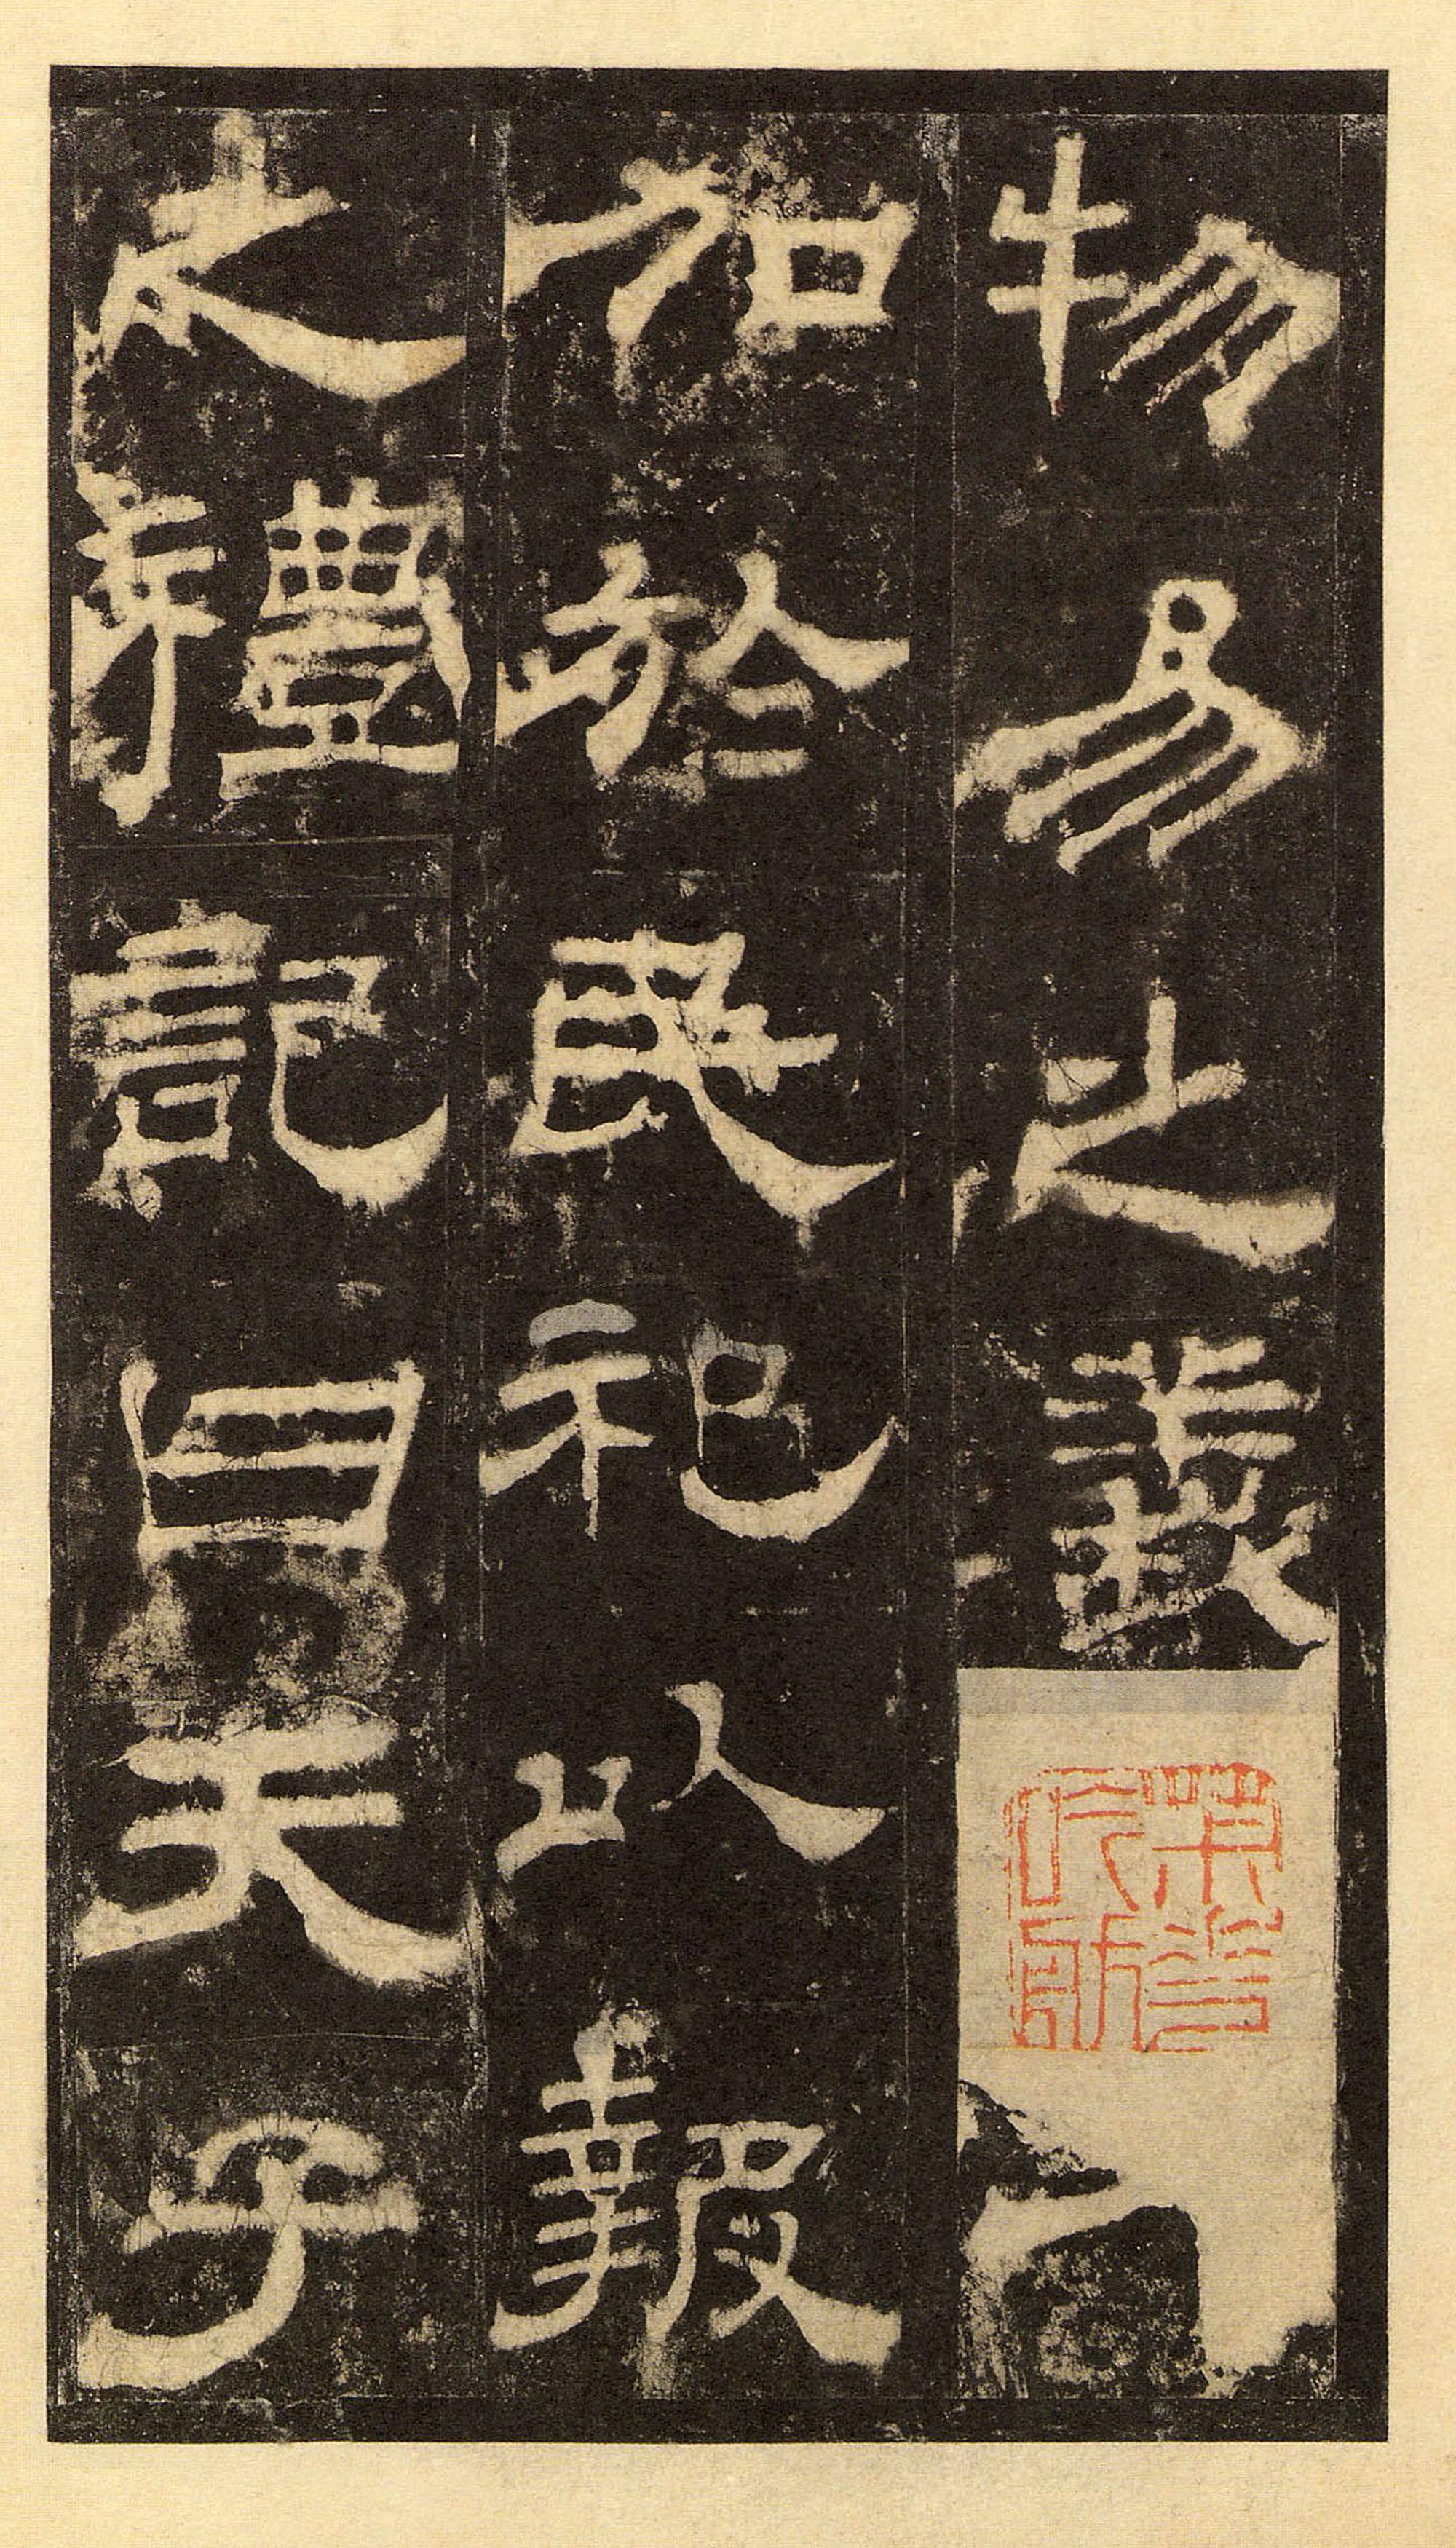 物易之義
加於民祀以報
之禮記曰天子